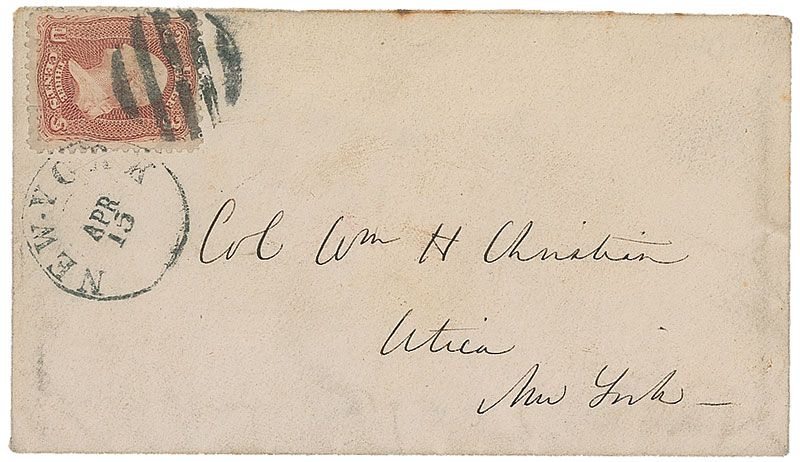 NEW-YORK
APR
13
Col Wm H Christian
Utica
New York —